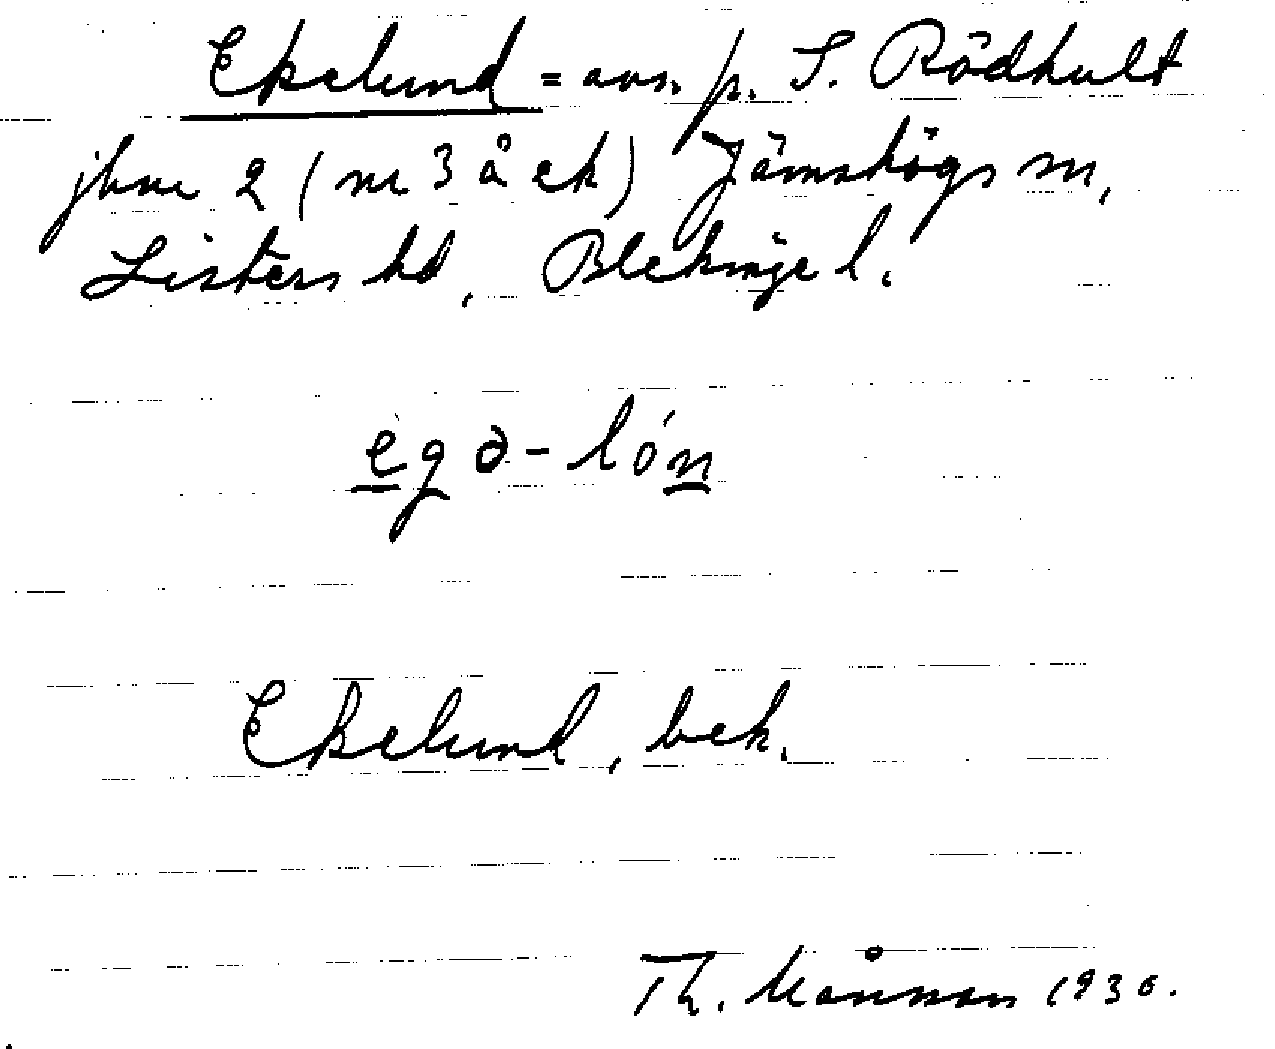 Ekelund = avs. p. S. Rödhult
jbnr 2 (nr 3 å ek) Jämshögs sn,
Listers hd, Blekinge l.
egə-lón
Ekelund, bek.
Th. Månsson 1930.